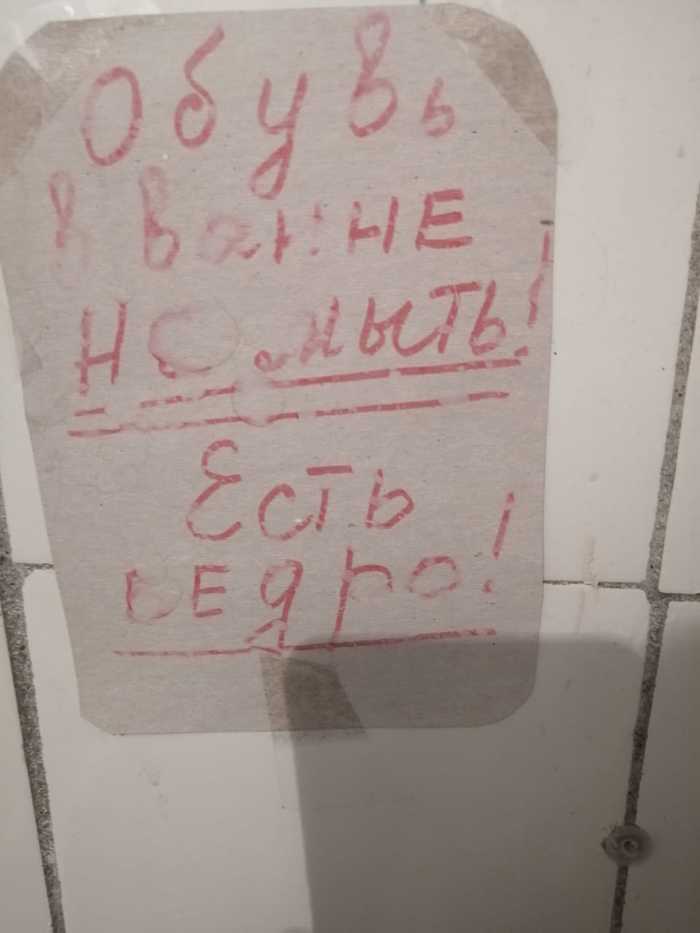 Обувь
в ванне
не мыть!
Есть
ведро!